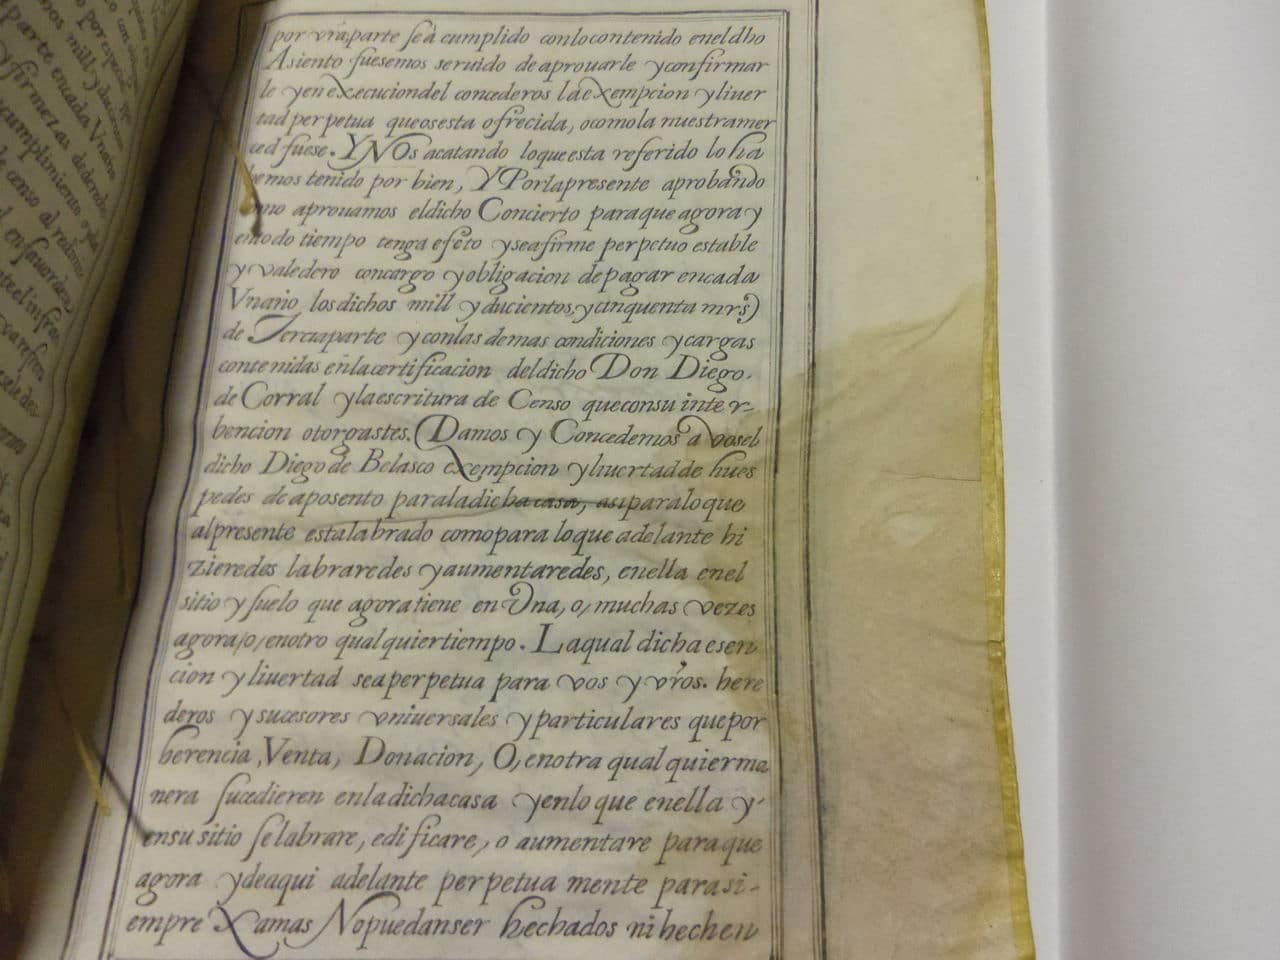 por vr̃a parte se à cumplido con lo contenido en el dho
Asiento fuesemos seruido de aprouarle y confirmar
le y en execucion del concederos la exempcion y liuer
tad perpetua que os esta ofrecida, o como la nuestra mer
ced fuese. Y NOs acatando lo que esta referido lo ha
bemos tenido por bien, Y Por la presente aprobando
como aprouamos el dicho Concierto para que agora y
en todo tiempo tenga efeto y sea firme perpetuo estable
y valedero con cargo y obligacion de pagar en cada
Vn año, los dichos mill y ducientos, y cinquenta mrs)
de Tercia parte y con las demas condiciones y cargas
contenidas en la certificacion del dicho Don Diego.
de Corral y la escritura de Censo que con su inter-
bencion otorgastes. Damos y Concedemos a vos el
dicho Diego de Belasco exempcion y liuertad de hues
pedes de aposento para la dicha casa, asi para lo que
al presente esta labrado como para lo que adelante hi
zieredes labraredes y aumentaredes, en ella en el
sitio y suelo que agora tiene en Vna, o, muchas vezes
agora, o, en otro qual quier tiempo. La qual dicha esen
cion y liuertad sea perpetua para vos y vr̃os. here
deros y sucesores vniuersales y particulares que por
herencia, Venta, Donacion, O, en otra qual quier ma
nera sucedieren en la dicha casa y en lo que en ella y
en su sitio se labrare, edificare, o aumentare para que
agora y de aqui adelante perpetua mente para si-
empre Xamas No puedan ser hechados ni hechen